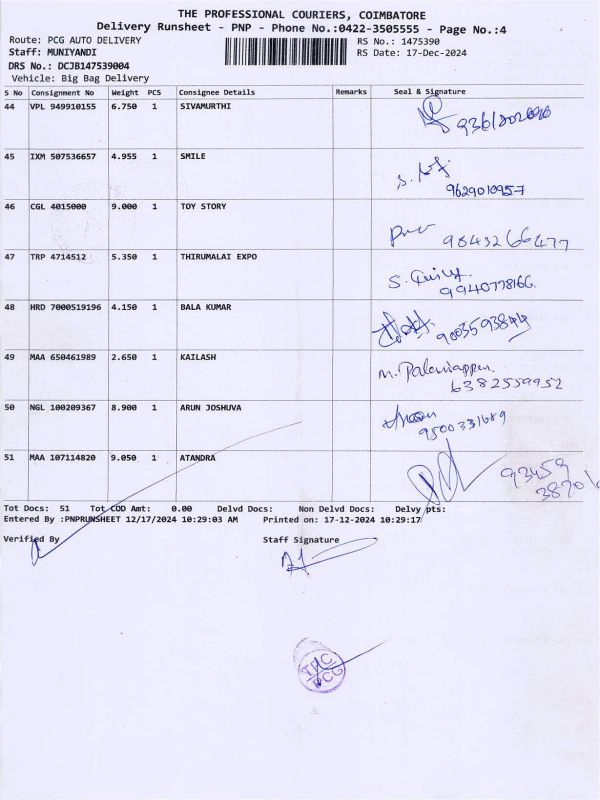 THE PROFESSIONAL COURIERS, COIMBATORE
Delivery Runsheet - PNP - Phone No.:0422-3505555 - Page No.:4
Route: PCG AUTO DELIVERY RS No.: 1475390
Staff: MUNIYANDI RS Date: 17-Dec-2024
DRS No.: DCJB147539004
Vehicle: Big Bag Delivery
S No Consignment No Weight PCS Consignee Details Remarks Seal & Signature
44 VPL 949910155 6.750 1 SIVAMURTHI
45 IXM 507536657 4.955 1 SMILE
9629010957
46 CGL 4015000 9.000 1 TOY STORY
9843266477
47 TRP 4714512 5.350 1 THIRUMALAI EXPO
9940778166
48 HRD 7000519196 4.150 1 BALA KUMAR
49 MAA 650461989 2.650 1 KAILASH
M. Palaniappan
6382559952
50 NGL 100209367 8.900 1 ARUN JOSHUVA
9500331689
51 MAA 107114820 9.050 1 ATANDRA
93459
Tot Docs: 51 Tot COD Amt: 0.00 Delvd Docs: Non Delvd Docs: Delvy pts:
Entered By :PNPRUNSHEET 12/17/2024 10:29:03 AM Printed on: 17-12-2024 10:29:17
Verified By Staff Signature
TPC
PCG